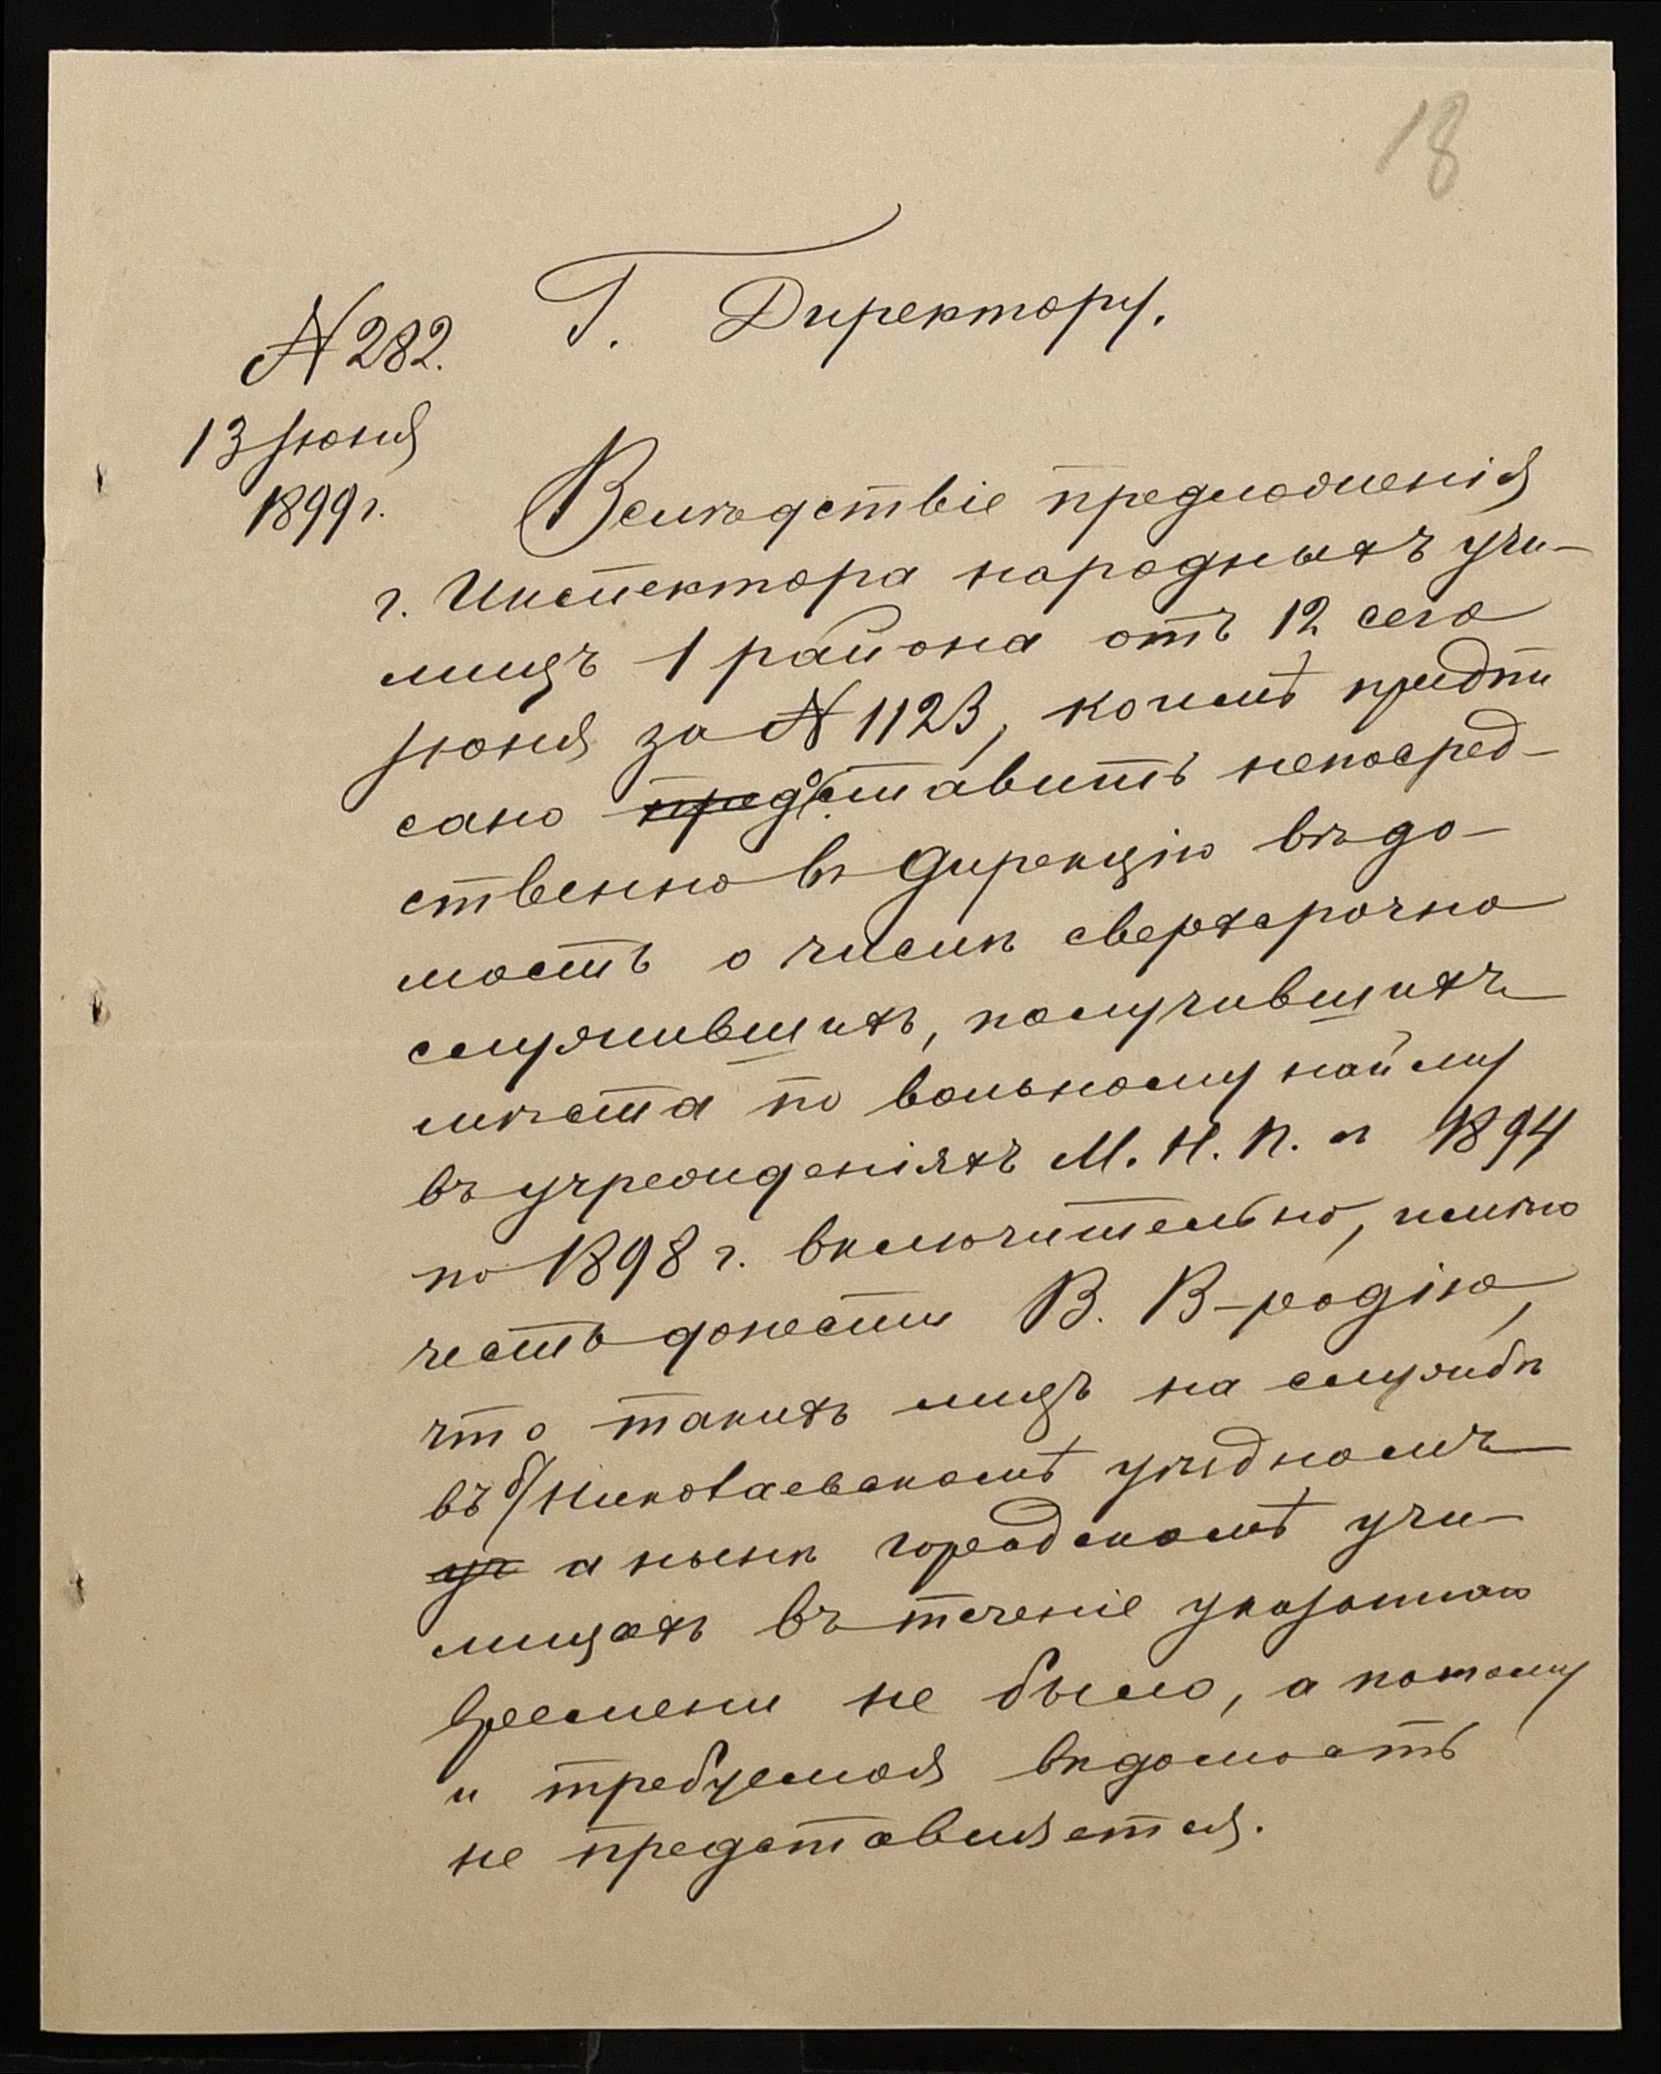 18
Г. Директору.
№ 282.
13 Іюня
1899 г.
Вслѣдствіе предложенія
г. Инспектора народныхъ учи-
лищъ 1 района отъ 12 сего
Іюня за № 1123, коимъ предпи
сано доставить непосред-
ственно въ Дирекцію вѣдо-
мость о числѣ сверхсрочно
служившихъ, получившихъ
мѣста по вольному найму
въ учрежденіяхъ М. Н. П. съ 1894
по 1898 г. включительно, имѣю
честь донести В. В-родію,
что такихъ лицъ на службѣ
въ б/Николаевскомъ уѣздномъ
а нынѣ городскомъ учи-
лищахъ въ теченіе указаннаго
времени не было, а потому
и требуемая вѣдомость
не представляется.